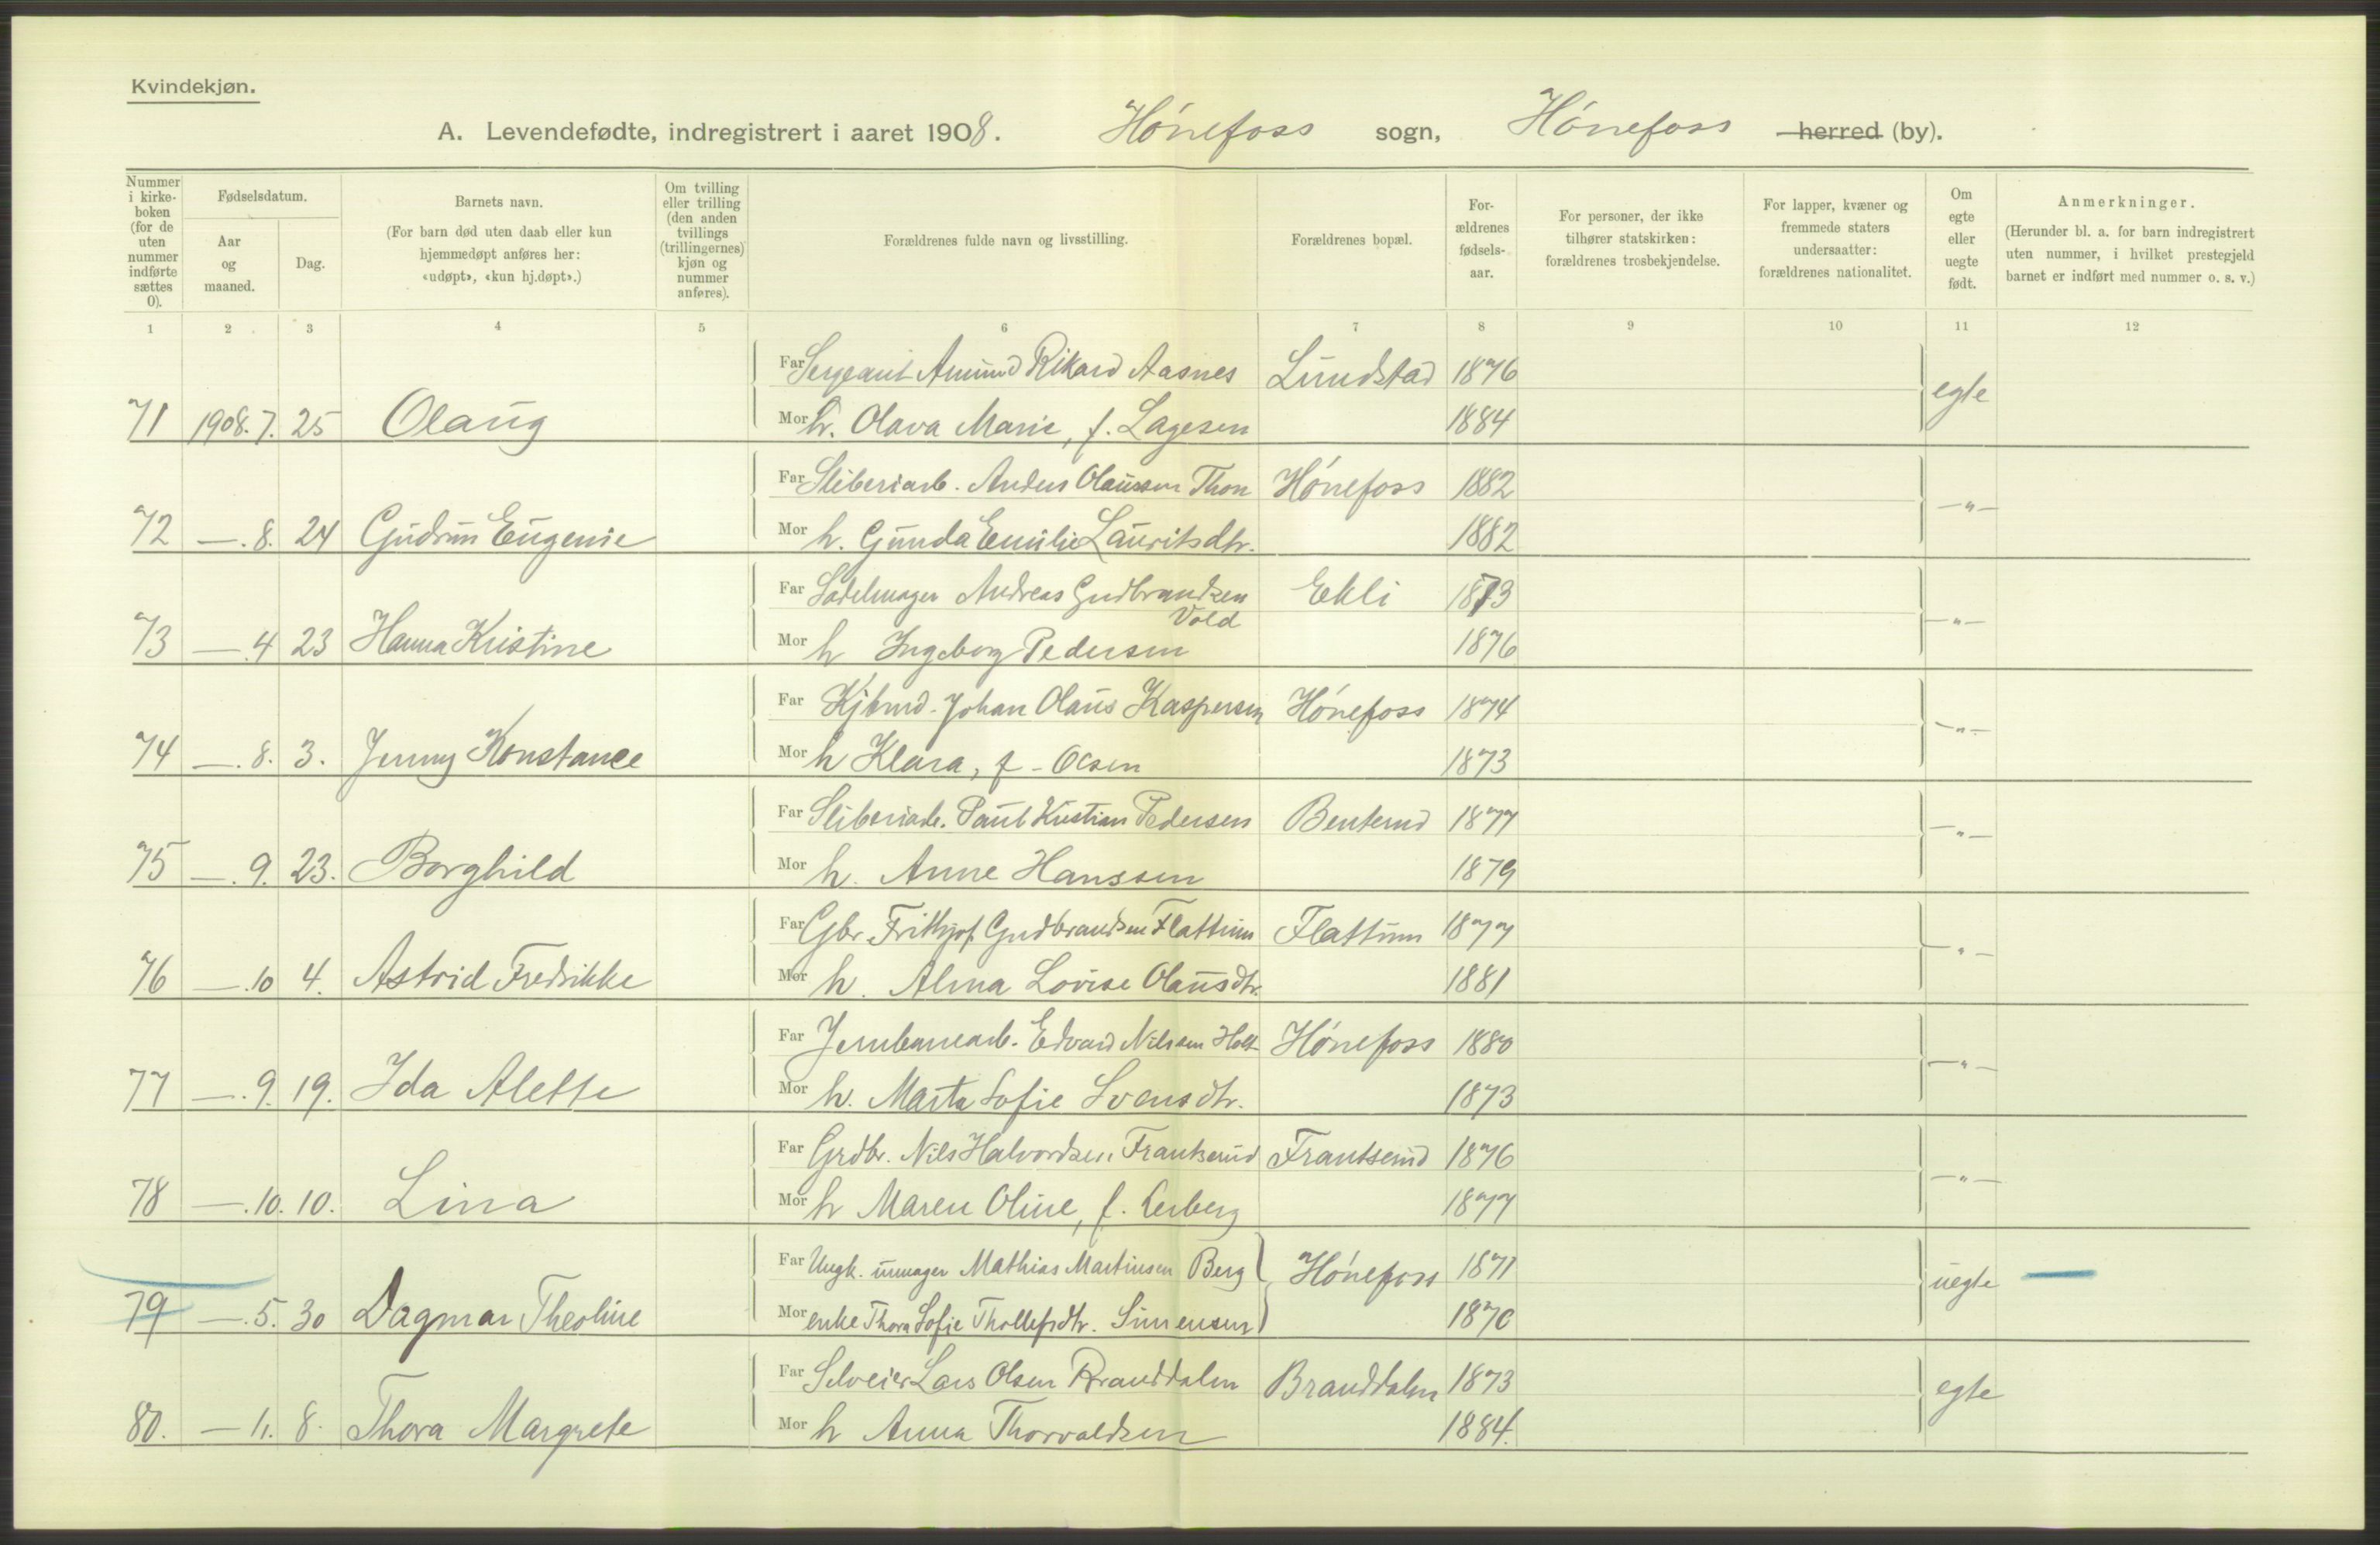 Kvindekjøn.
A. Levendefødte, indregistrert i aaret 1908. Hónefoss sogn, Hónefoss herred (by).
Nummer i kirke- boken (for de uten nummer indførte sættes 0).
Fødselsdatum.
Aar og maaned.
Dag.
Barnets navn.
(For barn død uten daab eller kun hjemmedøpt anføres her: «udøpt», «kun hj.døpt».)
Om tvilling eller trilling (den anden tvillings (trillingernes) kjøn og nummer anføres).
Forældrenes fulde navn og livsstilling.
Forældrenes bopæl.
For- ældrenes fødsels- aar.
For personer, der ikke tilhører statskirken: forældrenes trosbekjendelse.
For lapper, kvæner og fremmede staters undersaatter: forældrenes nationalitet.
Om egte eller uegte født.
Anmerkninger.
(Herunder bl. a. for barn indregistrert uten nummer, i hvilket prestegjeld barnet er indført med nummer o. s. v.)
1 2 3 4 5 6 7 8 9 10 11 12
Far Sergeant Amund Rikard Aasnes Lundstad 1876 egte
71 1908. 7. 25 Olaug Mor h. Olava Marie, f. Lagesen 1884
Far Sliberiarb. Anders Olaussen Thon Hónefoss 1882 -"-
72 —. 8. 24 Gudrun Eugenie Mor h. Gunda Emilie Lauritsdtr. 1882
Far Sadelmager Andreas Gudbrandsen Ekli 1873 -"-
Vold
73 —. 4 23 Hanna Kristine Mor h Ingeborg Pedersen 1876
Far Kjbmd. Johan Olaus Kaspersen Hónefoss 1874 -"-
74 —. 8. 3. Jenny Konstance Mor h Klara, f - Olsen 1873
Far Sliberiarb. Paul Kristian Pedersen Benterud 1877 -"-
75 —. 9. 23. Borghild Mor h. Anne Hanssen 1879
Far Gbr. Frithjof Gudbrandsen Flattum Flattum 1877 -"-
76 —. 10 4. Astrid Fredrikke Mor h. Alma Lovise Olausdtr. 1881
Far Jernbanearb. Edvard Nilssen Holt Hónefoss 1880 -"-
77 —. 9. 19. Ida Alette Mor h. Marta Sofie Svensdtr. 1873
Far Grdbr. Nils Halvordsen Frantserud Frantserud 1876 -"-
78 —. 10. 10. Lina Mor h Maren Oline, f. Lerberg 1877
Far Ungk. urmager Mathias Martinsen Berg Hónefoss 1871 uegte —
79 —. 5. 30 Dagmar Theoline Mor enke Thora Sofie Thollefsdtr. Simensen 1870
Far Selveier Lars Olsen Branddalen Branddalen 1873 egte
80. — 11. 8. Thora Margrete Mor h Anna Thorvaldsen 1884.